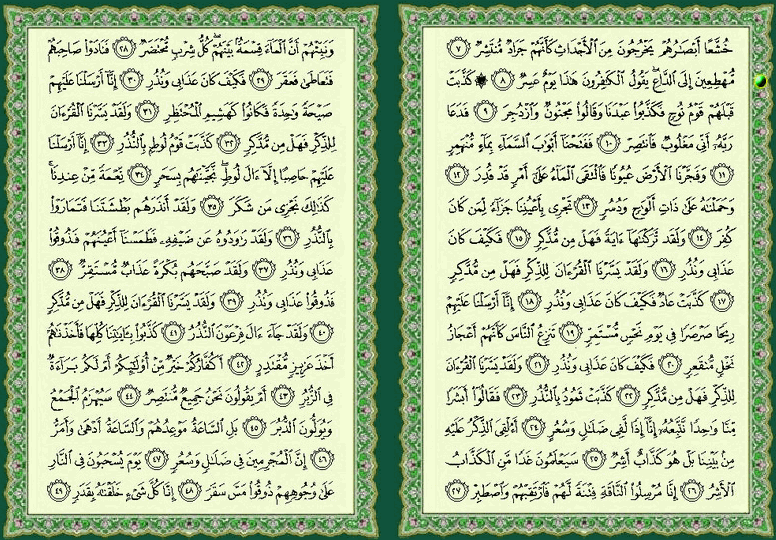 خُشَّعًا أَبْصَٰرُهُمْ يَخْرُجُونَ مِنَ ٱلْأَجْدَاثِ كَأَنَّهُمْ جَرَادٌ مُّنتَشِرٌ ﴿٧﴾
مُّهْطِعِينَ إِلَى ٱلدَّاعِ ۖ يَقُولُ ٱلْكَٰفِرُونَ هَٰذَا يَوْمٌ عَسِرٌ ﴿٨﴾ ۞ كَذَّبَتْ
قَبْلَهُمْ قَوْمُ نُوحٍ فَكَذَّبُوا۟ عَبْدَنَا وَقَالُوا۟ مَجْنُونٌ وَٱزْدُجِرَ ﴿٩﴾ فَدَعَا
رَبَّهُۥٓ أَنِّى مَغْلُوبٌ فَٱنتَصِرْ ﴿١٠﴾ فَفَتَحْنَآ أَبْوَٰبَ ٱلسَّمَآءِ بِمَآءٍ مُّنْهَمِرٍ
﴿١١﴾ وَفَجَّرْنَا ٱلْأَرْضَ عُيُونًا فَٱلْتَقَى ٱلْمَآءُ عَلَىٰٓ أَمْرٍ قَدْ قُدِرَ ﴿١٢﴾
وَحَمَلْنَٰهُ عَلَىٰ ذَاتِ أَلْوَٰحٍ وَدُسُرٍ ﴿١٣﴾ تَجْرِى بِأَعْيُنِنَا جَزَآءً لِّمَن كَانَ
كُفِرَ ﴿١٤﴾ وَلَقَد تَّرَكْنَٰهَآ ءَايَةً فَهَلْ مِن مُّدَّكِرٍ ﴿١٥﴾ فَكَيْفَ كَانَ
عَذَابِى وَنُذُرِ ﴿١٦﴾ وَلَقَدْ يَسَّرْنَا ٱلْقُرْءَانَ لِلذِّكْرِ فَهَلْ مِن مُّدَّكِرٍ
﴿١٧﴾ كَذَّبَتْ عَادٌ فَكَيْفَ كَانَ عَذَابِى وَنُذُرِ ﴿١٨﴾ إِنَّآ أَرْسَلْنَا عَلَيْهِمْ
رِيحًا صَرْصَرًا فِى يَوْمِ نَحْسٍ مُّسْتَمِرٍّ ﴿١٩﴾ تَنزِعُ ٱلنَّاسَ كَأَنَّهُمْ أَعْجَازُ
نَخْلٍ مُّنقَعِرٍ ﴿٢٠﴾ فَكَيْفَ كَانَ عَذَابِى وَنُذُرِ ﴿٢١﴾ وَلَقَدْ يَسَّرْنَا ٱلْقُرْءَانَ
لِلذِّكْرِ فَهَلْ مِن مُّدَّكِرٍ ﴿٢٢﴾ كَذَّبَتْ ثَمُودُ بِٱلنُّذُرِ ﴿٢٣﴾ فَقَالُوٓا۟ أَبَشَرًا
مِّنَّا وَٰحِدًا نَّتَّبِعُهُۥٓ إِنَّآ إِذًا لَّفِى ضَلَٰلٍ وَسُعُرٍ ﴿٢٤﴾ أَءُلْقِىَ ٱلذِّكْرُ عَلَيْهِ
مِنۢ بَيْنِنَا بَلْ هُوَ كَذَّابٌ أَشِرٌ ﴿٢٥﴾ سَيَعْلَمُونَ غَدًا مَّنِ ٱلْكَذَّابُ
ٱلْأَشِرُ ﴿٢٦﴾ إِنَّا مُرْسِلُوا۟ ٱلنَّاقَةِ فِتْنَةً لَّهُمْ فَٱرْتَقِبْهُمْ وَٱصْطَبِرْ ﴿٢٧﴾
وَنَبِّئْهُمْ أَنَّ ٱلْمَآءَ قِسْمَةٌۢ بَيْنَهُمْ ۖ كُلُّ شِرْبٍ مُّحْتَضَرٌ ﴿٢٨﴾ فَنَادَوْا۟ صَاحِبَهُمْ
فَتَعَاطَىٰ فَعَقَرَ ﴿٢٩﴾ فَكَيْفَ كَانَ عَذَابِى وَنُذُرِ ﴿٣٠﴾ إِنَّآ أَرْسَلْنَا عَلَيْهِمْ
صَيْحَةً وَٰحِدَةً فَكَانُوا۟ كَهَشِيمِ ٱلْمُحْتَظِرِ ﴿٣١﴾ وَلَقَدْ يَسَّرْنَا ٱلْقُرْءَانَ
لِلذِّكْرِ فَهَلْ مِن مُّدَّكِرٍ ﴿٣٢﴾ كَذَّبَتْ قَوْمُ لُوطٍۭ بِٱلنُّذُرِ ﴿٣٣﴾ إِنَّآ أَرْسَلْنَا
عَلَيْهِمْ حَاصِبًا إِلَّآ ءَالَ لُوطٍ ۖ نَّجَّيْنَٰهُم بِسَحَرٍ ﴿٣٤﴾ نِّعْمَةً مِّنْ عِندِنَا ۚ
كَذَٰلِكَ نَجْزِى مَن شَكَرَ ﴿٣٥﴾ وَلَقَدْ أَنذَرَهُم بَطْشَتَنَا فَتَمَارَوْا۟
بِٱلنُّذُرِ ﴿٣٦﴾ وَلَقَدْ رَٰوَدُوهُ عَن ضَيْفِهِۦ فَطَمَسْنَآ أَعْيُنَهُمْ فَذُوقُوا۟
عَذَابِى وَنُذُرِ ﴿٣٧﴾ وَلَقَدْ صَبَّحَهُم بُكْرَةً عَذَابٌ مُّسْتَقِرٌّ ﴿٣٨﴾
فَذُوقُوا۟ عَذَابِى وَنُذُرِ ﴿٣٩﴾ وَلَقَدْ يَسَّرْنَا ٱلْقُرْءَانَ لِلذِّكْرِ فَهَلْ مِن مُّدَّكِرٍ
﴿٤٠﴾ وَلَقَدْ جَآءَ ءَالَ فِرْعَوْنَ ٱلنُّذُرُ ﴿٤١﴾ كَذَّبُوا۟ بِـَٔايَٰتِنَا كُلِّهَا فَأَخَذْنَٰهُمْ
أَخْذَ عَزِيزٍ مُّقْتَدِرٍ ﴿٤٢﴾ أَكُفَّارُكُمْ خَيْرٌ مِّنْ أُو۟لَٰٓئِكُمْ أَمْ لَكُم بَرَآءَةٌ
فِى ٱلزُّبُرِ ﴿٤٣﴾ أَمْ يَقُولُونَ نَحْنُ جَمِيعٌ مُّنتَصِرٌ ﴿٤٤﴾ سَيُهْزَمُ ٱلْجَمْعُ
وَيُوَلُّونَ ٱلدُّبُرَ ﴿٤٥﴾ بَلِ ٱلسَّاعَةُ مَوْعِدُهُمْ وَٱلسَّاعَةُ أَدْهَىٰ وَأَمَرُّ
﴿٤٦﴾ إِنَّ ٱلْمُجْرِمِينَ فِى ضَلَٰلٍ وَسُعُرٍ ﴿٤٧﴾ يَوْمَ يُسْحَبُونَ فِى ٱلنَّارِ
عَلَىٰ وُجُوهِهِمْ ذُوقُوا۟ مَسَّ سَقَرَ ﴿٤٨﴾ إِنَّا كُلَّ شَىْءٍ خَلَقْنَٰهُ بِقَدَرٍ ﴿٤٩﴾